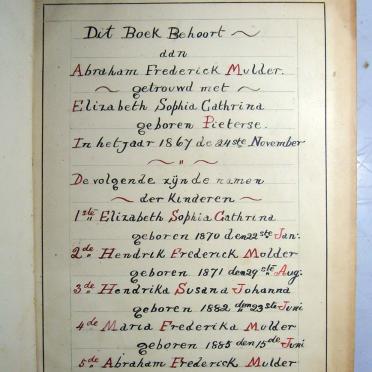 Dit Boek Behoort
aan
Abraham Frederick Mulder.
getrouwd met
Elizabeth Sophia Cathrina
geboren Pieterse.
In het jaar 1867 de 24ste November
"
De volgende zijnde namen
der Kinderen
1ste Elizabeth Sophia Cathrina
geboren 1870 den 22ste Jan:
2de Hendrik Frederick Mulder
geboren 1871 den 29ste Aug:
3de Hendrika Susana Johanna
geboren 1882 den 23ste Juni
4de Maria Frederika Mulder
geboren 1885 den 15de Juni
5de Abraham Frederick Mulder